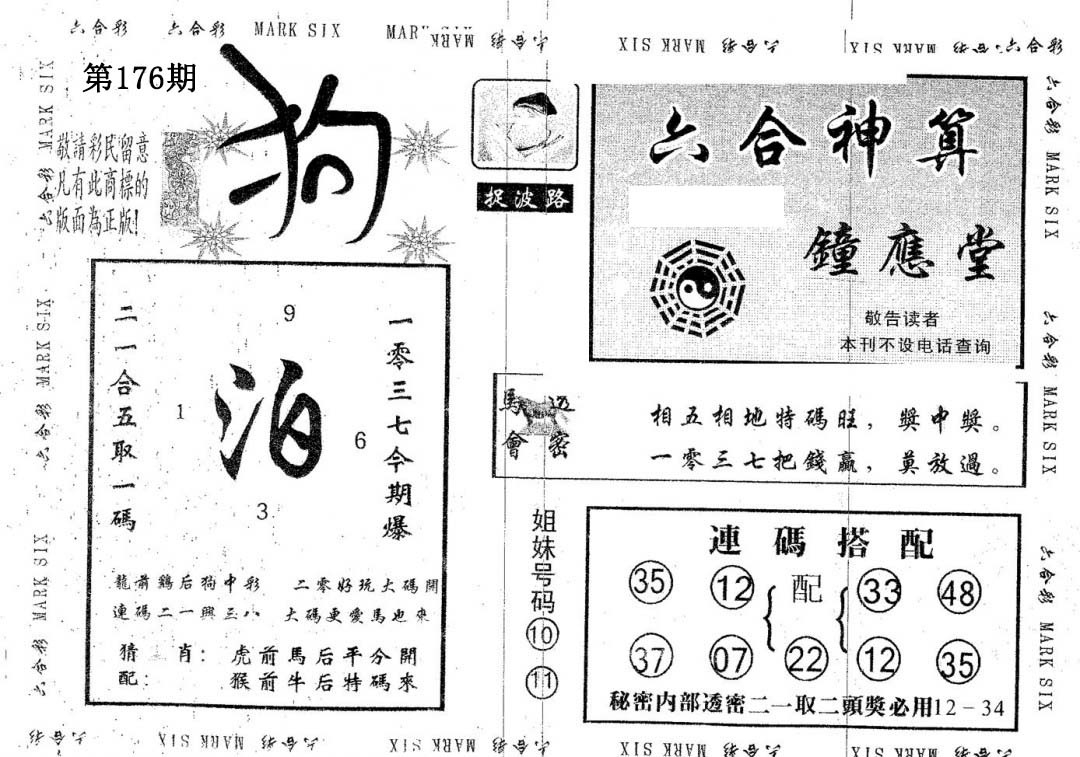 六合彩 六合彩 MARK SIX MARK SIX 六合彩 MARK SIX 六合彩 MARK SIX 六合彩 六合彩
第176期
狗
敬請彩民留意
凡有此商標的
版面為正版!
二一合五取一碼
9
1
泊
6
3
一零三七今期爆
龍前鷄后狗中彩 二零好玩大碼開
連碼二一興三八 大碼更愛馬也來
猜 肖：虎前馬后平分開
配： 猴前牛后特碼來
捉波路
六合神算
鐘應堂
敬告读者
本刊不设电话查询
馬會
透密
相五相地特碼旺，獎中獎。
一零三七把錢贏，莫放過。
姐妹号码
10
11
連碼搭配
35 12 配 33 48
37 07 22 12 35
秘密内部透密二一取二頭獎必用12-34
六合彩 MARK SIX 六合彩 MARK SIX 六合彩 MARK SIX
六合彩 MARK SIX 六合彩 MARK SIX 六合彩 MARK SIX
六合彩 MARK SIX 六合彩 MARK SIX 六合彩 MARK SIX 六合彩 MARK SIX 六合彩